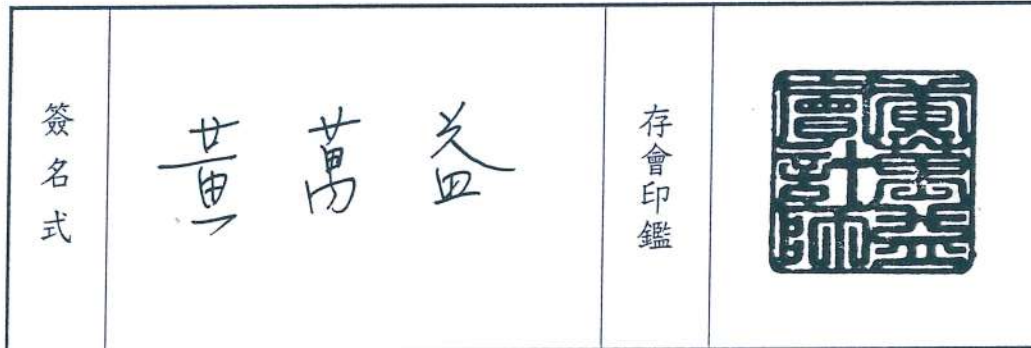 簽名式
黃萬益
存會印鑑
黃萬益
會計師